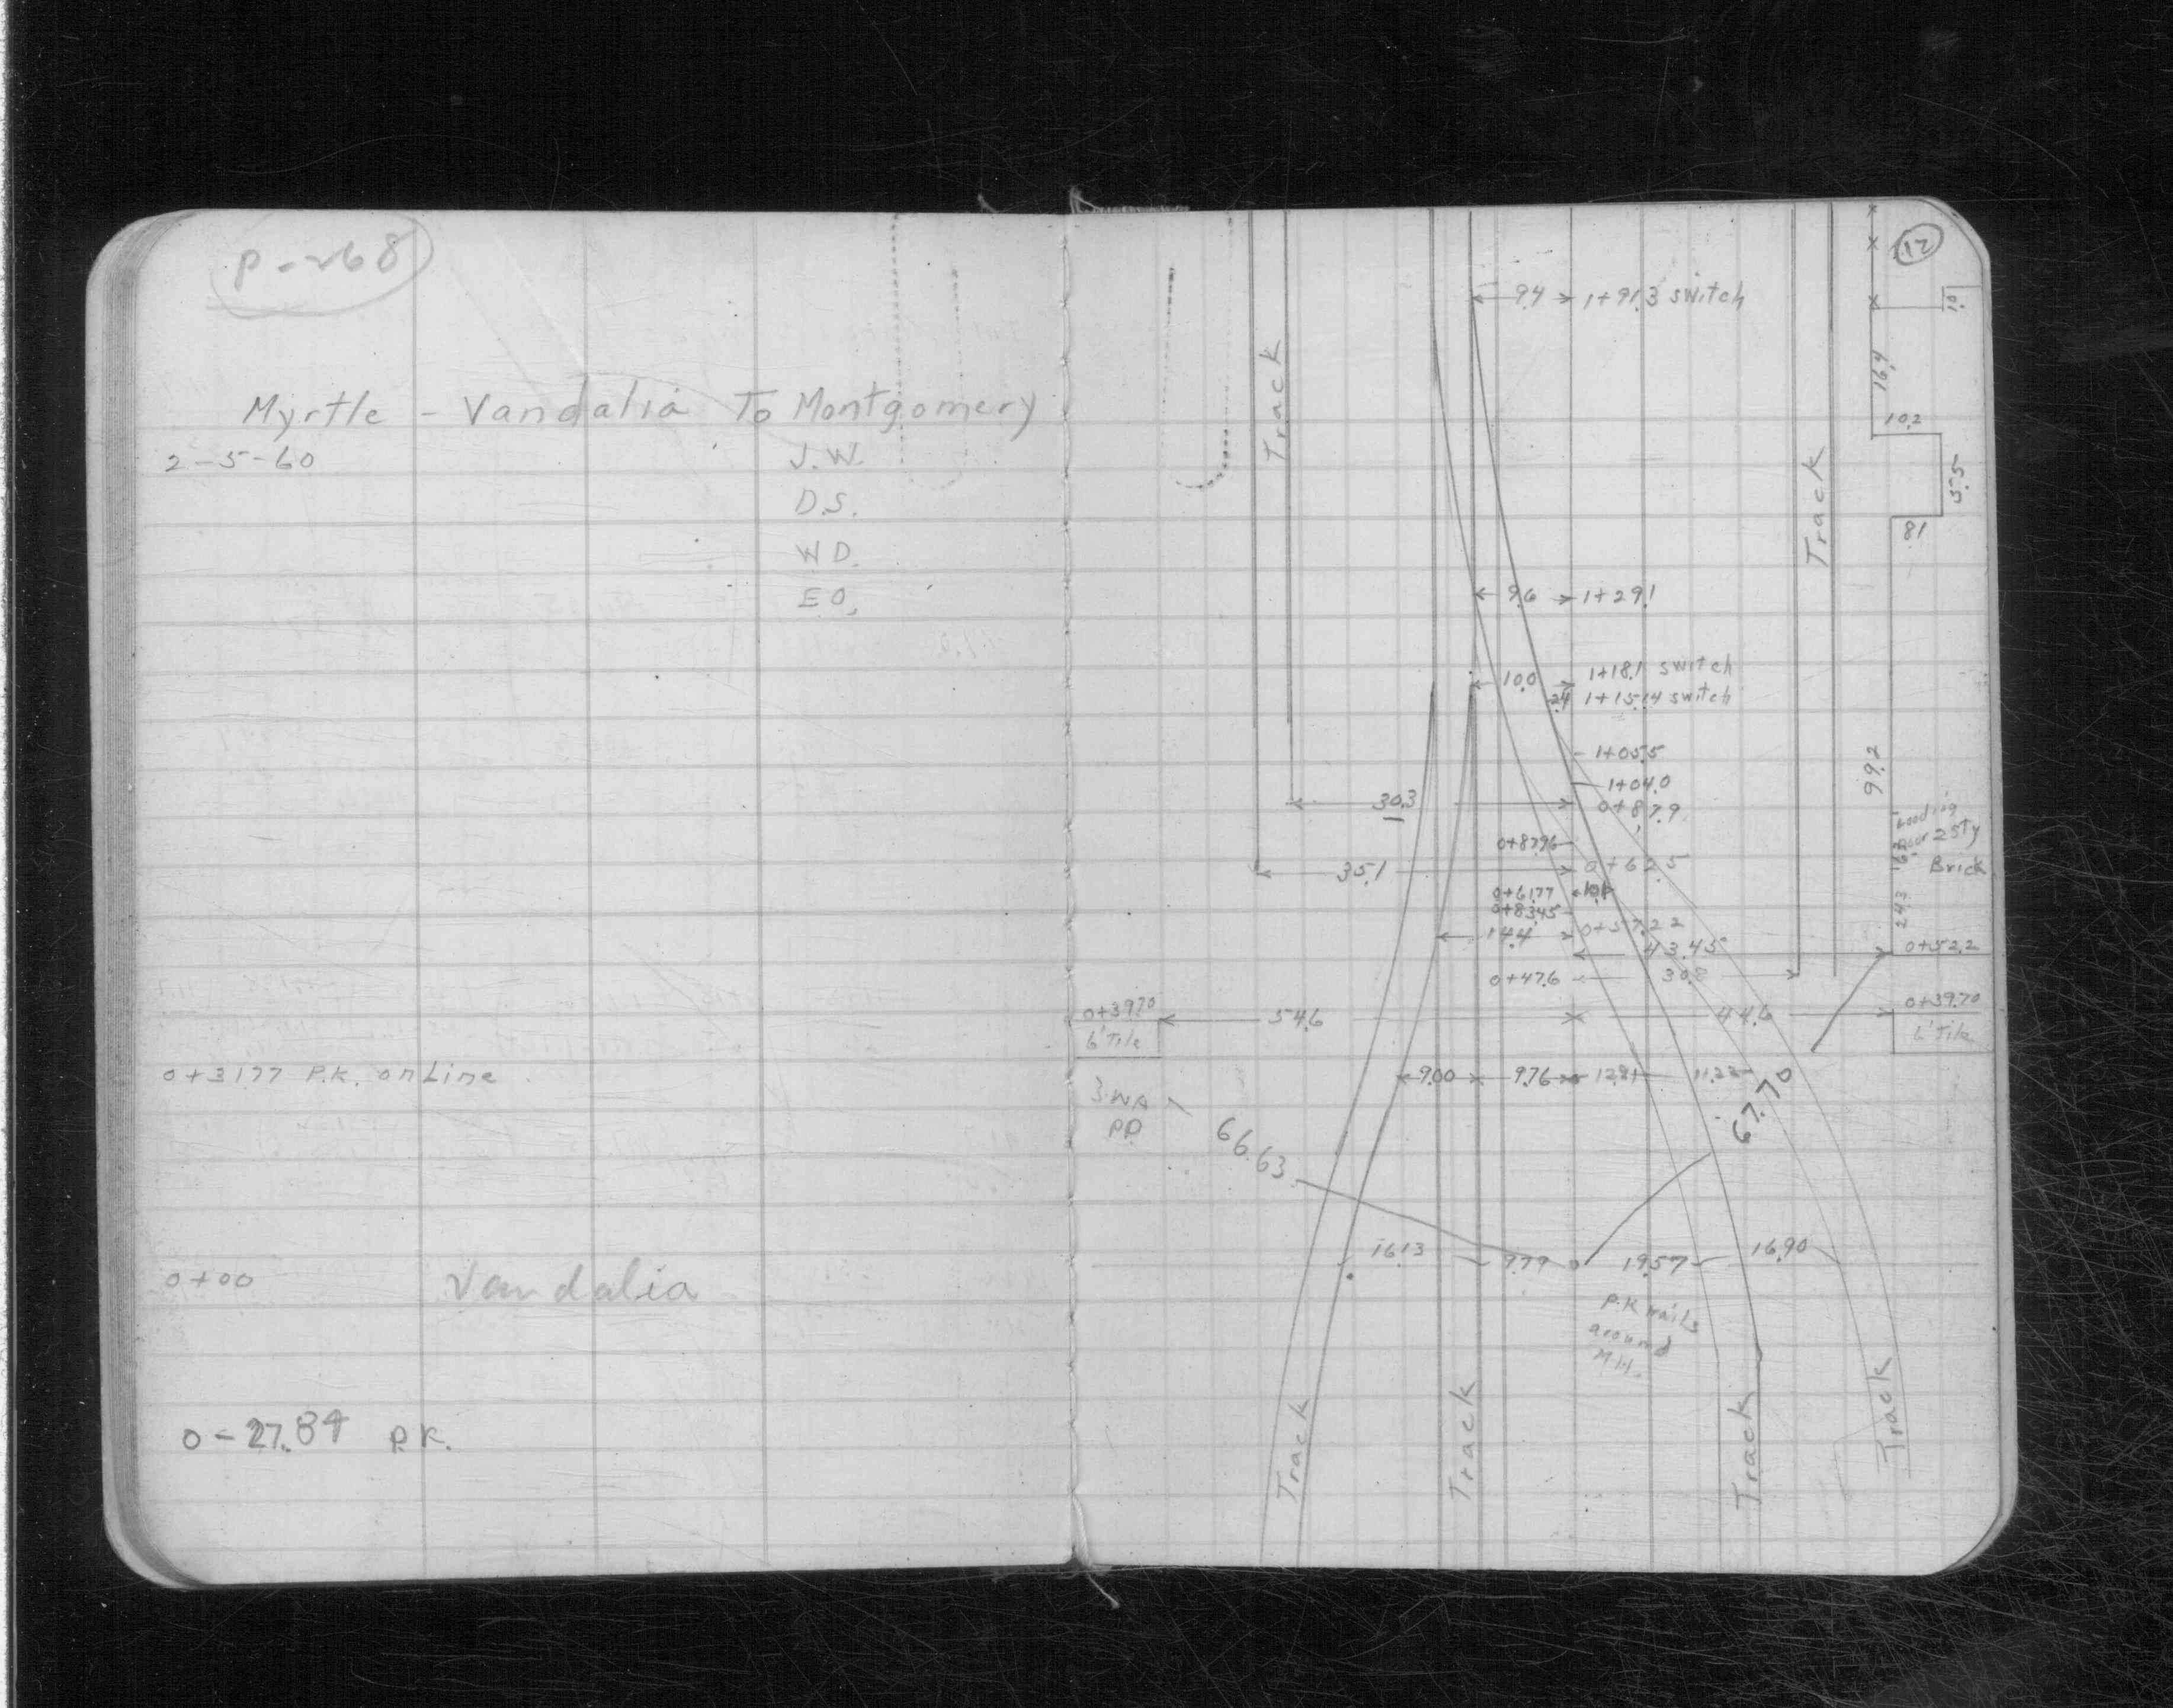 P-268
Myrtle - Vandalia To Montgomery
2-5-60 J.W.
D.S.
W D.
E O.
0+31.77 P.K. on Line
0+00 Vandalia
0-27.84 P.K.
12
9.4 1+91.3 switch
10.1
Track
16.4
10.2
Track
5.5
8.1
9.6 1+29.1
10.0 1+18.1 switch
2.4 1+15.14 switch
1+05.5
1+04.0
30.3 0+87.9
99.2
0+87.96
Loading
Door 2 Sty
Brick
35.1 0+62.5
0+61.77 10.1
0+83.45
24.3
14.4 0+57.22
43.45
0+52.2
0+47.6 30.8
0+39.70 54.6 44.6 0+39.70
6' Tile 6' Tile
9.00 9.76 12.21 11.22
3 WA
PP
66.63
67.70
16.13 9.79 19.57 16.90
P.K nails
around
M.H.
Track Track Track Track